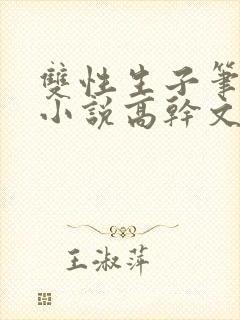 雙性生子筆
小說高幹文
王淑萍